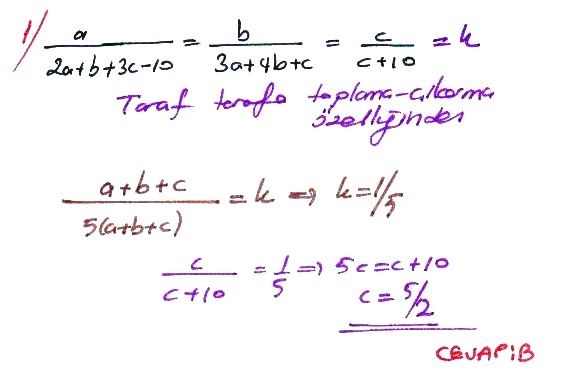 1/ a/(2a+b+3c-10) = b/(3a+4b+c) = c/(c+10) = k
Taraf tarafa toplama-çıkarma
özelliğinden
(a+b+c)/(5(a+b+c)) = k ⇒ k=1/5
c/(c+10) = 1/5 ⇒ 5c=c+10
c=5/2
CEVAP:B